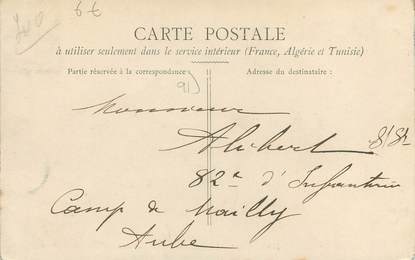 CARTE POSTALE
à utiliser seulement dans le service intérieur (France, Algérie et Tunisie)
Partie réservée à la correspondance
Adresse du destinataire :
91
Monsieur
Alibert
82e d'Infanterie
Camp de Mailly
Aube